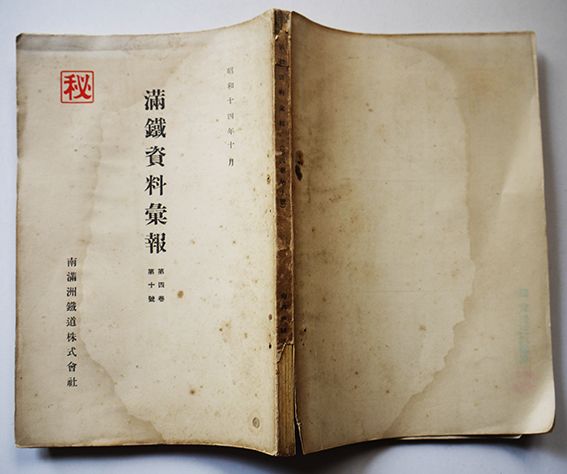 昭和十四年十月
秘
滿鐵資料彙報
第四卷
第十號
南滿洲鐵道株式會社